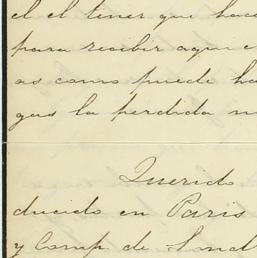 el el tener que hace
para recibir aqui e
as como puede ha
gas la perdida m
Querido
ducido en Paris
y Comp. de Lond